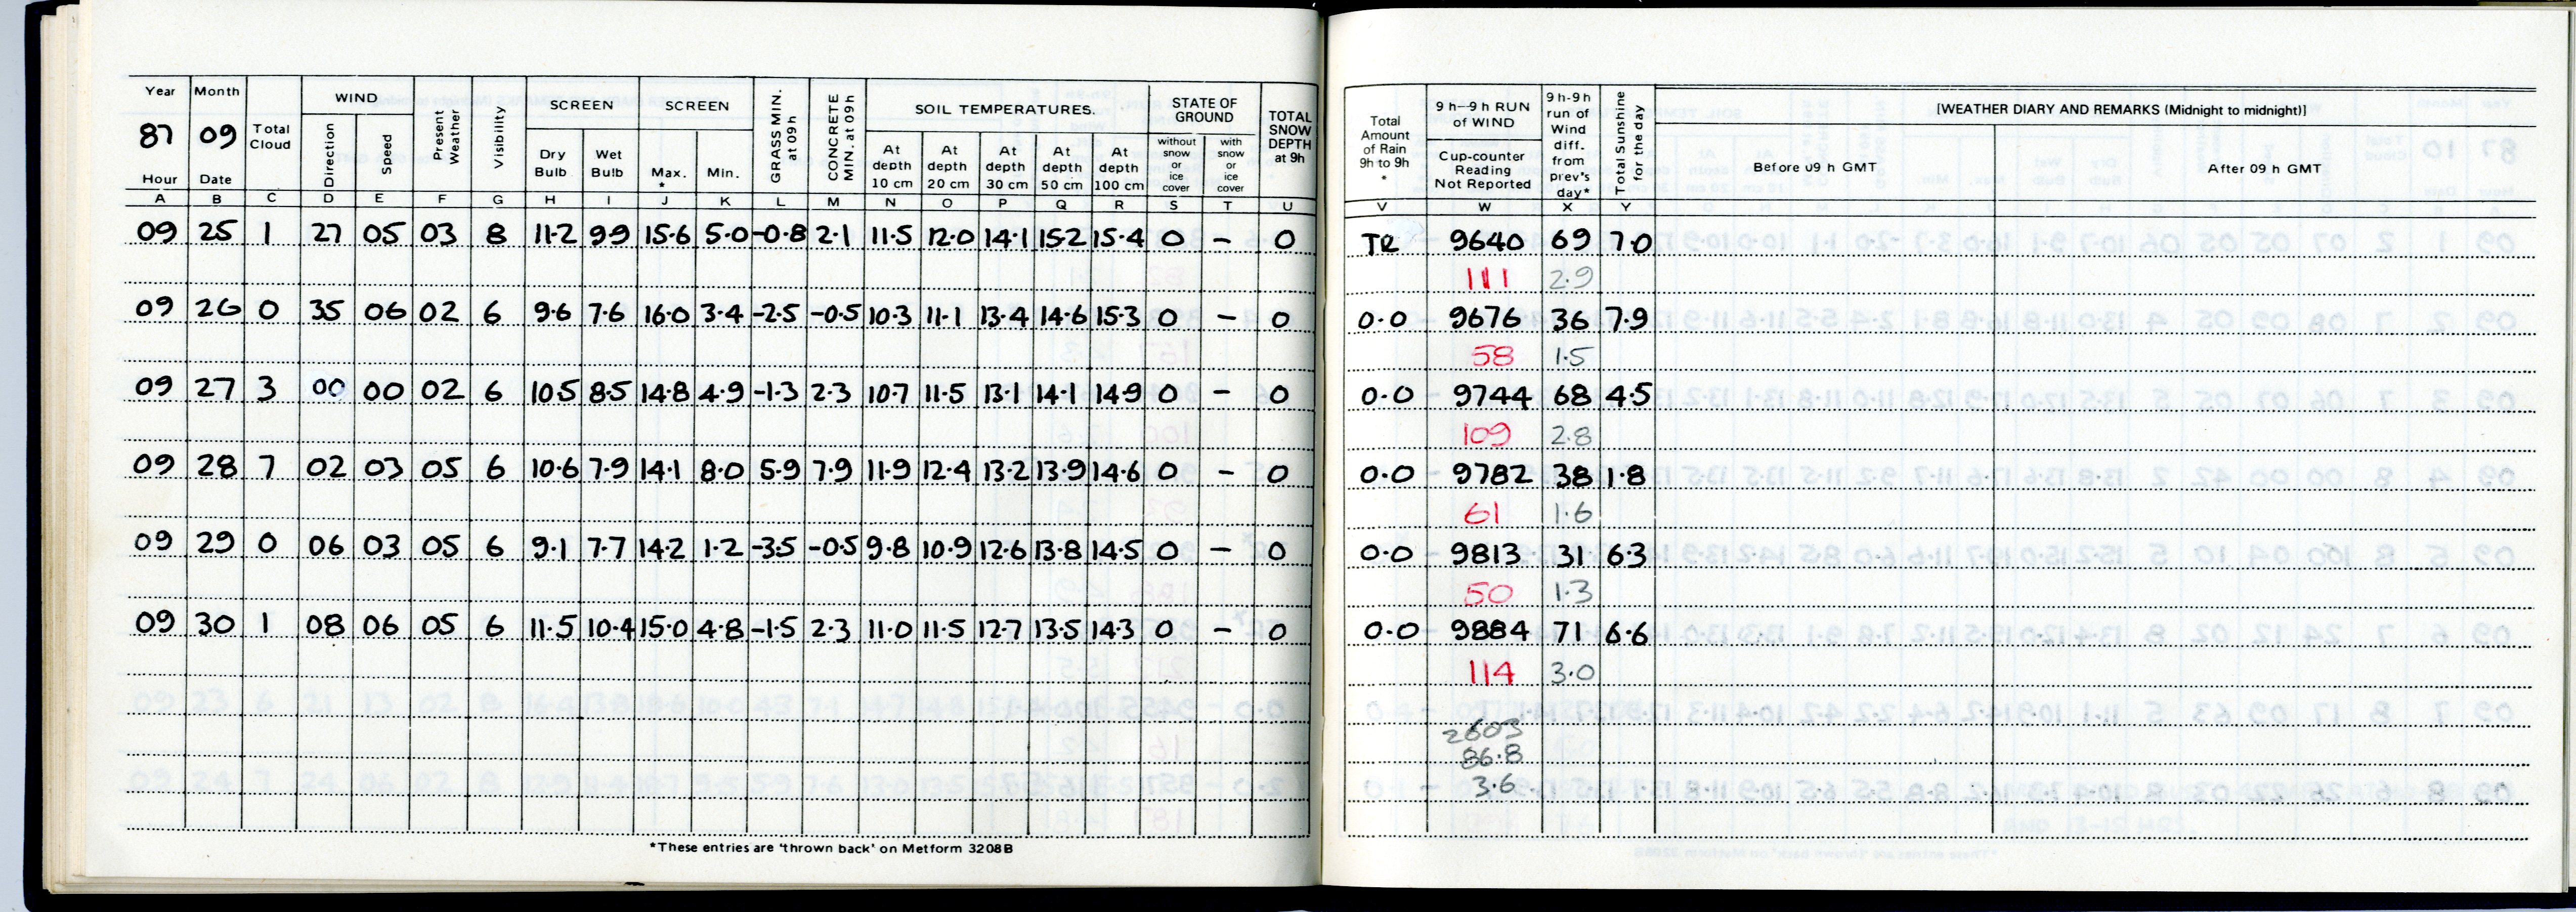 Year Month WIND SCREEN SCREEN SOIL TEMPERATURES. STATE OF GROUND
87 09 Total Cloud Direction Speed Present Weather Visibility Dry Bulb Wet Bulb Max. * Min. GRASS MIN. at 09h CONCRETE MIN. at 09h At depth 10 cm At depth 20 cm At depth 30 cm At depth 50 cm At depth 100 cm without snow or ice cover with snow or ice cover TOTAL SNOW DEPTH at 9h
Hour Date
A B C D E F G H I J K L M N O P Q R S T U
09 25 1 27 05 03 8 11.2 9.9 15.6 5.0 -0.8 2.1 11.5 12.0 14.1 15.2 15.4 0 – 0
09 26 0 35 06 02 6 9.6 7.6 16.0 3.4 -2.5 -0.5 10.3 11.1 13.4 14.6 15.3 0 – 0
09 27 3 00 00 02 6 10.5 8.5 14.8 4.9 -1.3 2.3 10.7 11.5 13.1 14.1 14.9 0 – 0
09 28 7 02 03 05 6 10.6 7.9 14.1 8.0 5.9 7.9 11.9 12.4 13.2 13.9 14.6 0 – 0
09 29 0 06 03 05 6 9.1 7.7 14.2 1.2 -3.5 -0.5 9.8 10.9 12.6 13.8 14.5 0 – 0
09 30 1 08 06 05 6 11.5 10.4 15.0 4.8 -1.5 2.3 11.0 11.5 12.7 13.5 14.3 0 – 0
*These entries are 'thrown back' on Metform 3208B
Total Amount of Rain 9h to 9h * 9 h–9 h RUN of WIND Cup-counter Reading Not Reported 9 h-9h run of Wind diff. from prev's day* Total Sunshine for the day [WEATHER DIARY AND REMARKS (Midnight to midnight)]
Before 09 h GMT After 09 h GMT
V W X Y
TR 9640 69 7.0
111 2.9
0.0 9676 36 7.9
58 1.5
0.0 9744 68 4.5
109 2.8
0.0 9782 38 1.8
61 1.6
0.0 9813 31 6.3
50 1.3
0.0 9884 71 6.6
114 3.0
2603
86.8
3.6